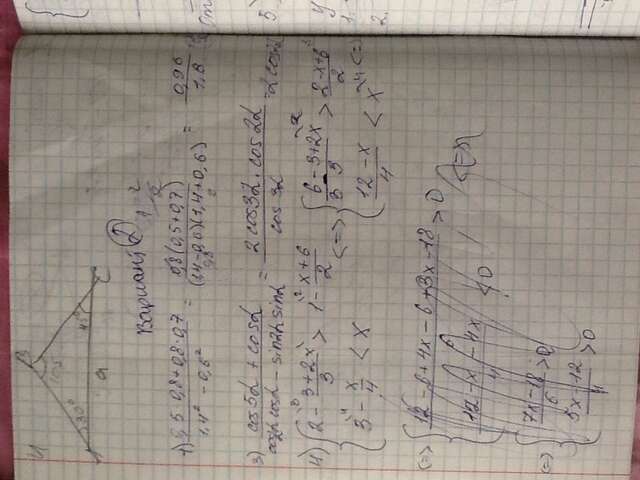 4
B
105
30°
45°
A
a
C
Вариант 2
1) (0,5 · 0,8 + 0,8 · 0,7) / (1,4² - 0,6²) = 0,8(0,5+0,7) / (1,4-0,6)(1,4+0,6) = 0,96 / 1,6
3) (cos5α + cosα) / (cos2α cosα - sin2α sinα) = 2cos3α · cos2α / cos3α = 2cos2α
4) { 2 - (3+2x)/3 > 1 - (x+6)/2 <=> { (6-3+2x)/3 > (2-x+6)/2
3 - x/4 < x (12-x)/4 < x <=>
<=> { 12 - 6 + 4x - 6 + 3x - 18 > 0
(12 - x - 4x)/4 < 0
<=> { (7x - 18)/6 > 0
(5x - 12)/4 > 0